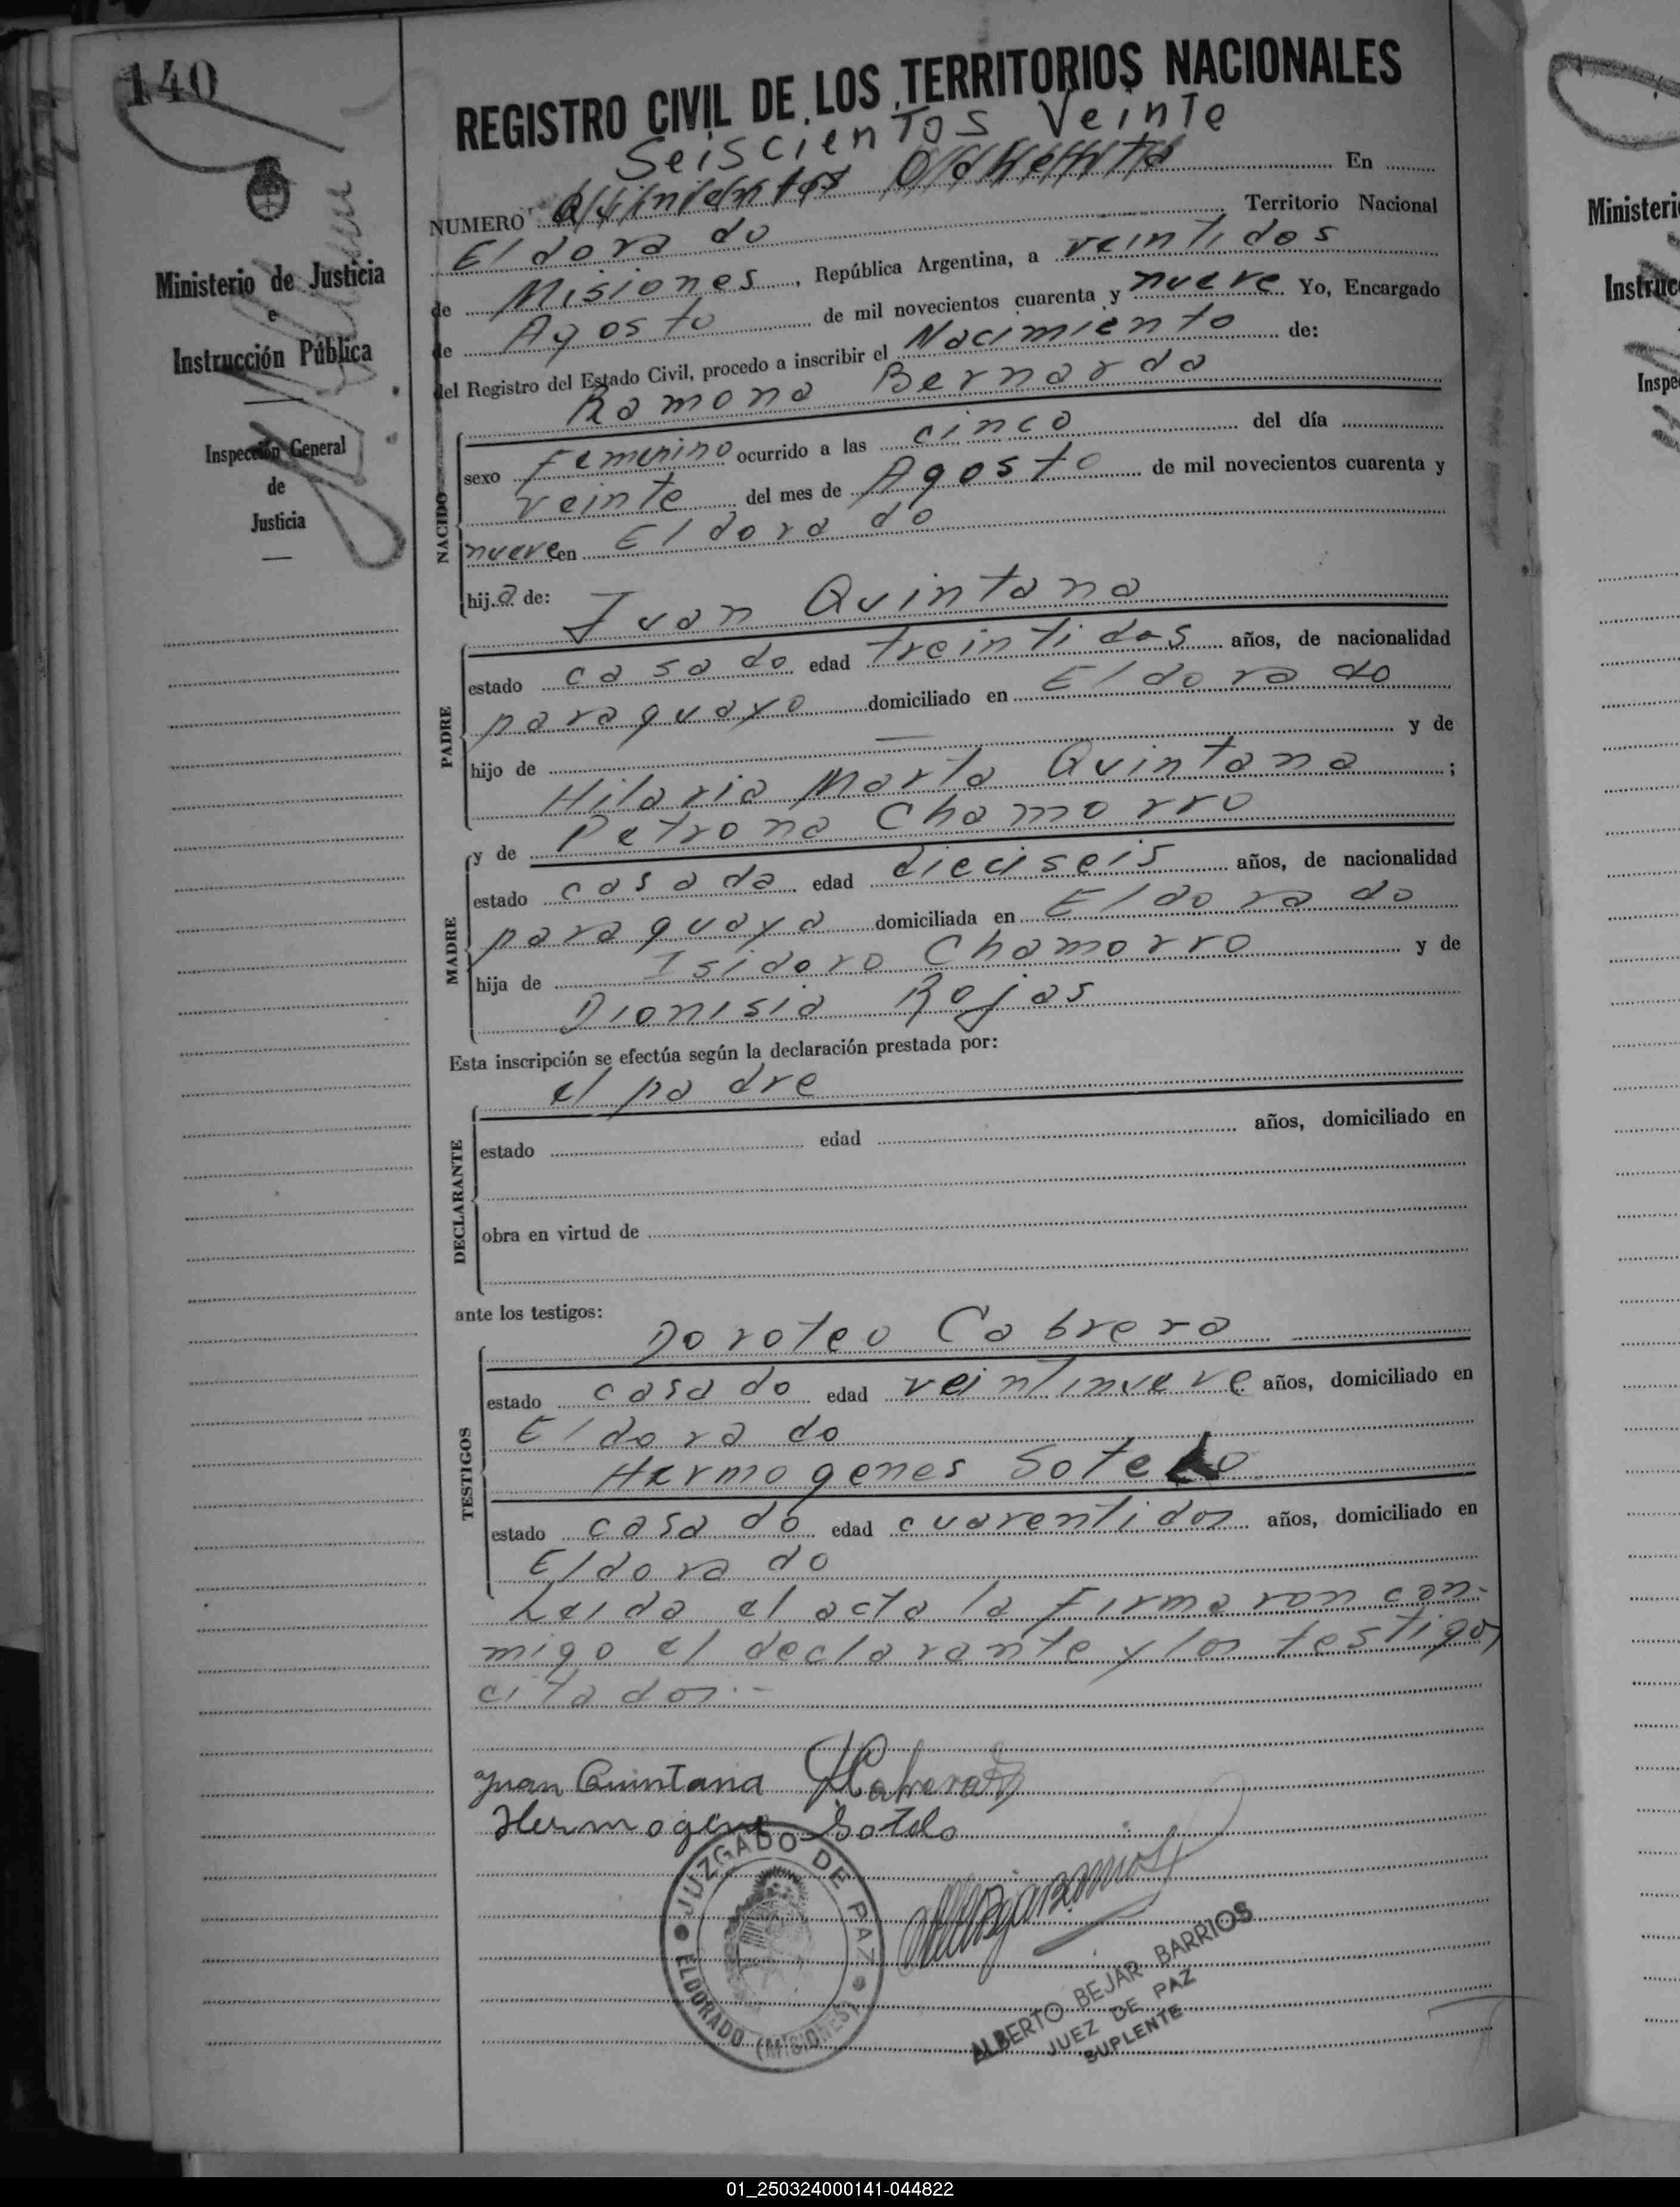 140
REGISTRO CIVIL DE LOS TERRITORIOS NACIONALES
Seiscientos Veinte
NUMERO Quinientos Ochenta En
Eldorado Territorio Nacional
de Misiones, República Argentina, a veintidos
de Agosto de mil novecientos cuarenta y nueve Yo, Encargado
del Registro del Estado Civil, procedo a inscribir el Nacimiento de:
Ramona Bernarda
NACIDO
sexo Femenino ocurrido a las cinco del día
veinte del mes de Agosto de mil novecientos cuarenta y
nueve en Eldorado
hija de:
Juan Quintana
PADRE
estado casado edad treintidos años, de nacionalidad
paraguayo domiciliado en Eldorado
hijo de — y de
Hilaria Marta Quintana ;
y de Petrona Chamorro
MADRE
estado casada edad dieciseis años, de nacionalidad
paraguaya domiciliada en Eldorado
hija de Isidoro Chamorro y de
Dionisia Rojas
Esta inscripción se efectúa según la declaración prestada por:
el padre
DECLARANTE
estado edad años, domiciliado en
obra en virtud de
ante los testigos:
Doroteo Cabrera
TESTIGOS
estado casado edad veintinueve años, domiciliado en
Eldorado
Hermogenes Sotelo
estado casado edad cuarentidos años, domiciliado en
Eldorado
Leida el acta la firmaron con-
migo el declarante y los testigos
citados.-
Juan Quintana Cabrera
Hermogene Sotelo
JUZGADO DE PAZ
ELDORADO (MISIONES)
ALBERTO BEJAR BARRIOS
JUEZ DE PAZ
SUPLENTE
Ministerio de Justicia
e
Instrucción Pública
Inspección General
de
Justicia
Ministeri
Instruc
Inspe
01_250324000141-044822